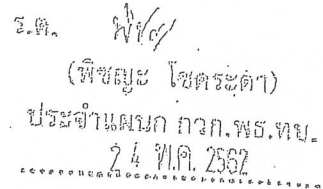 ร.ต.
(พิชญะ โชตระดา)
ประจำแผนก กวก.พธ.ทบ.
24 พ.ค. 2562